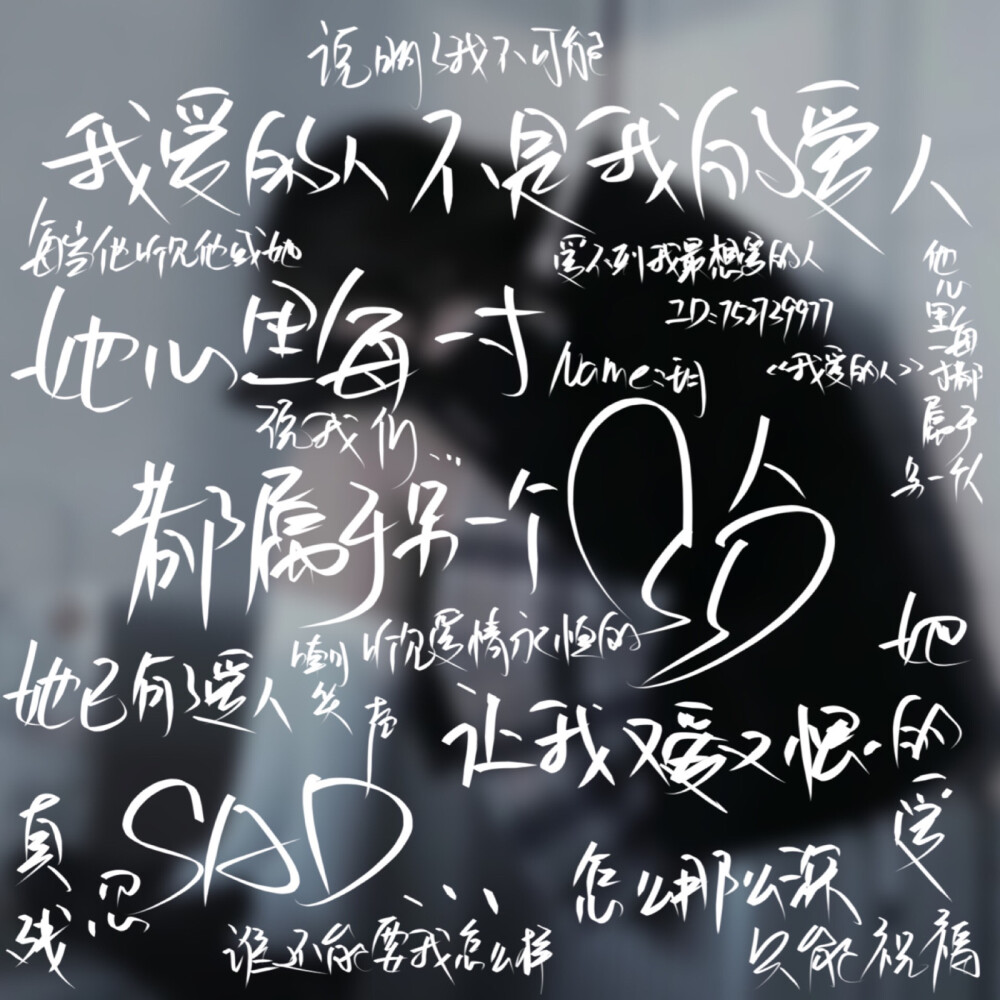 说明了我不可能
我爱的人不是我的爱人
每当他听见他或她
爱不到我最想要的人
ID:752739977
她心里每一寸
Name:玥
《我爱的人》
他心里每寸都属于另一个人
说我们...
都属于另一个人
听见爱情永恒的
嘲笑声
她已有了爱人
她的爱
让我又爱又恨.
真残忍
SAD...
怎么那么深
谁还能要我怎么样
只能祝福